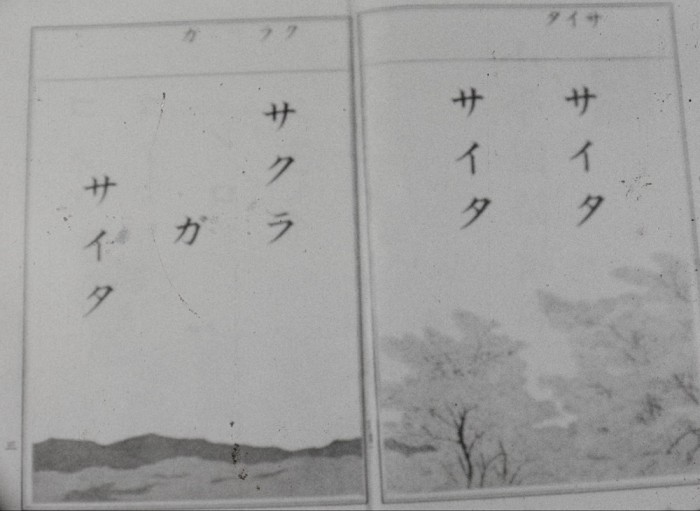 サイタ
サイタ
サイタ
サクラ
ガ
サイタ
クラ ガ
三